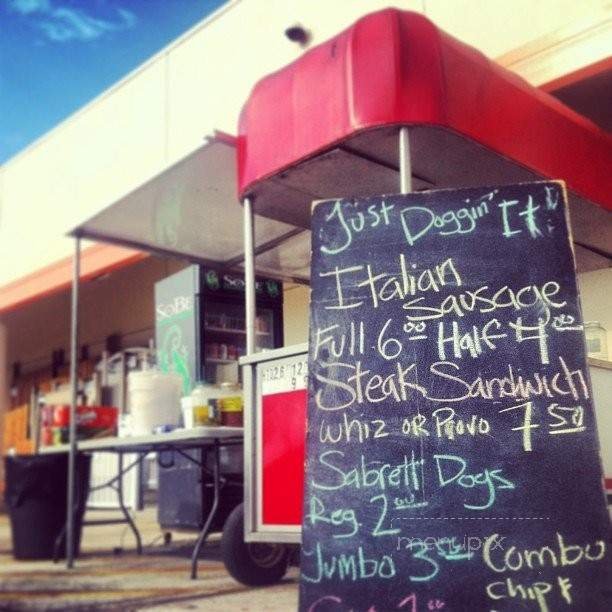 Just Doggin' It
Italian
Sausage
Full 6.00 Half 4.00
Steak Sandwich
Whiz or Provo 7.50
Sabrett Dogs
Reg. 2.00
Jumbo 3.50 Combo
Chip &
SoBe
SoBe
menupix